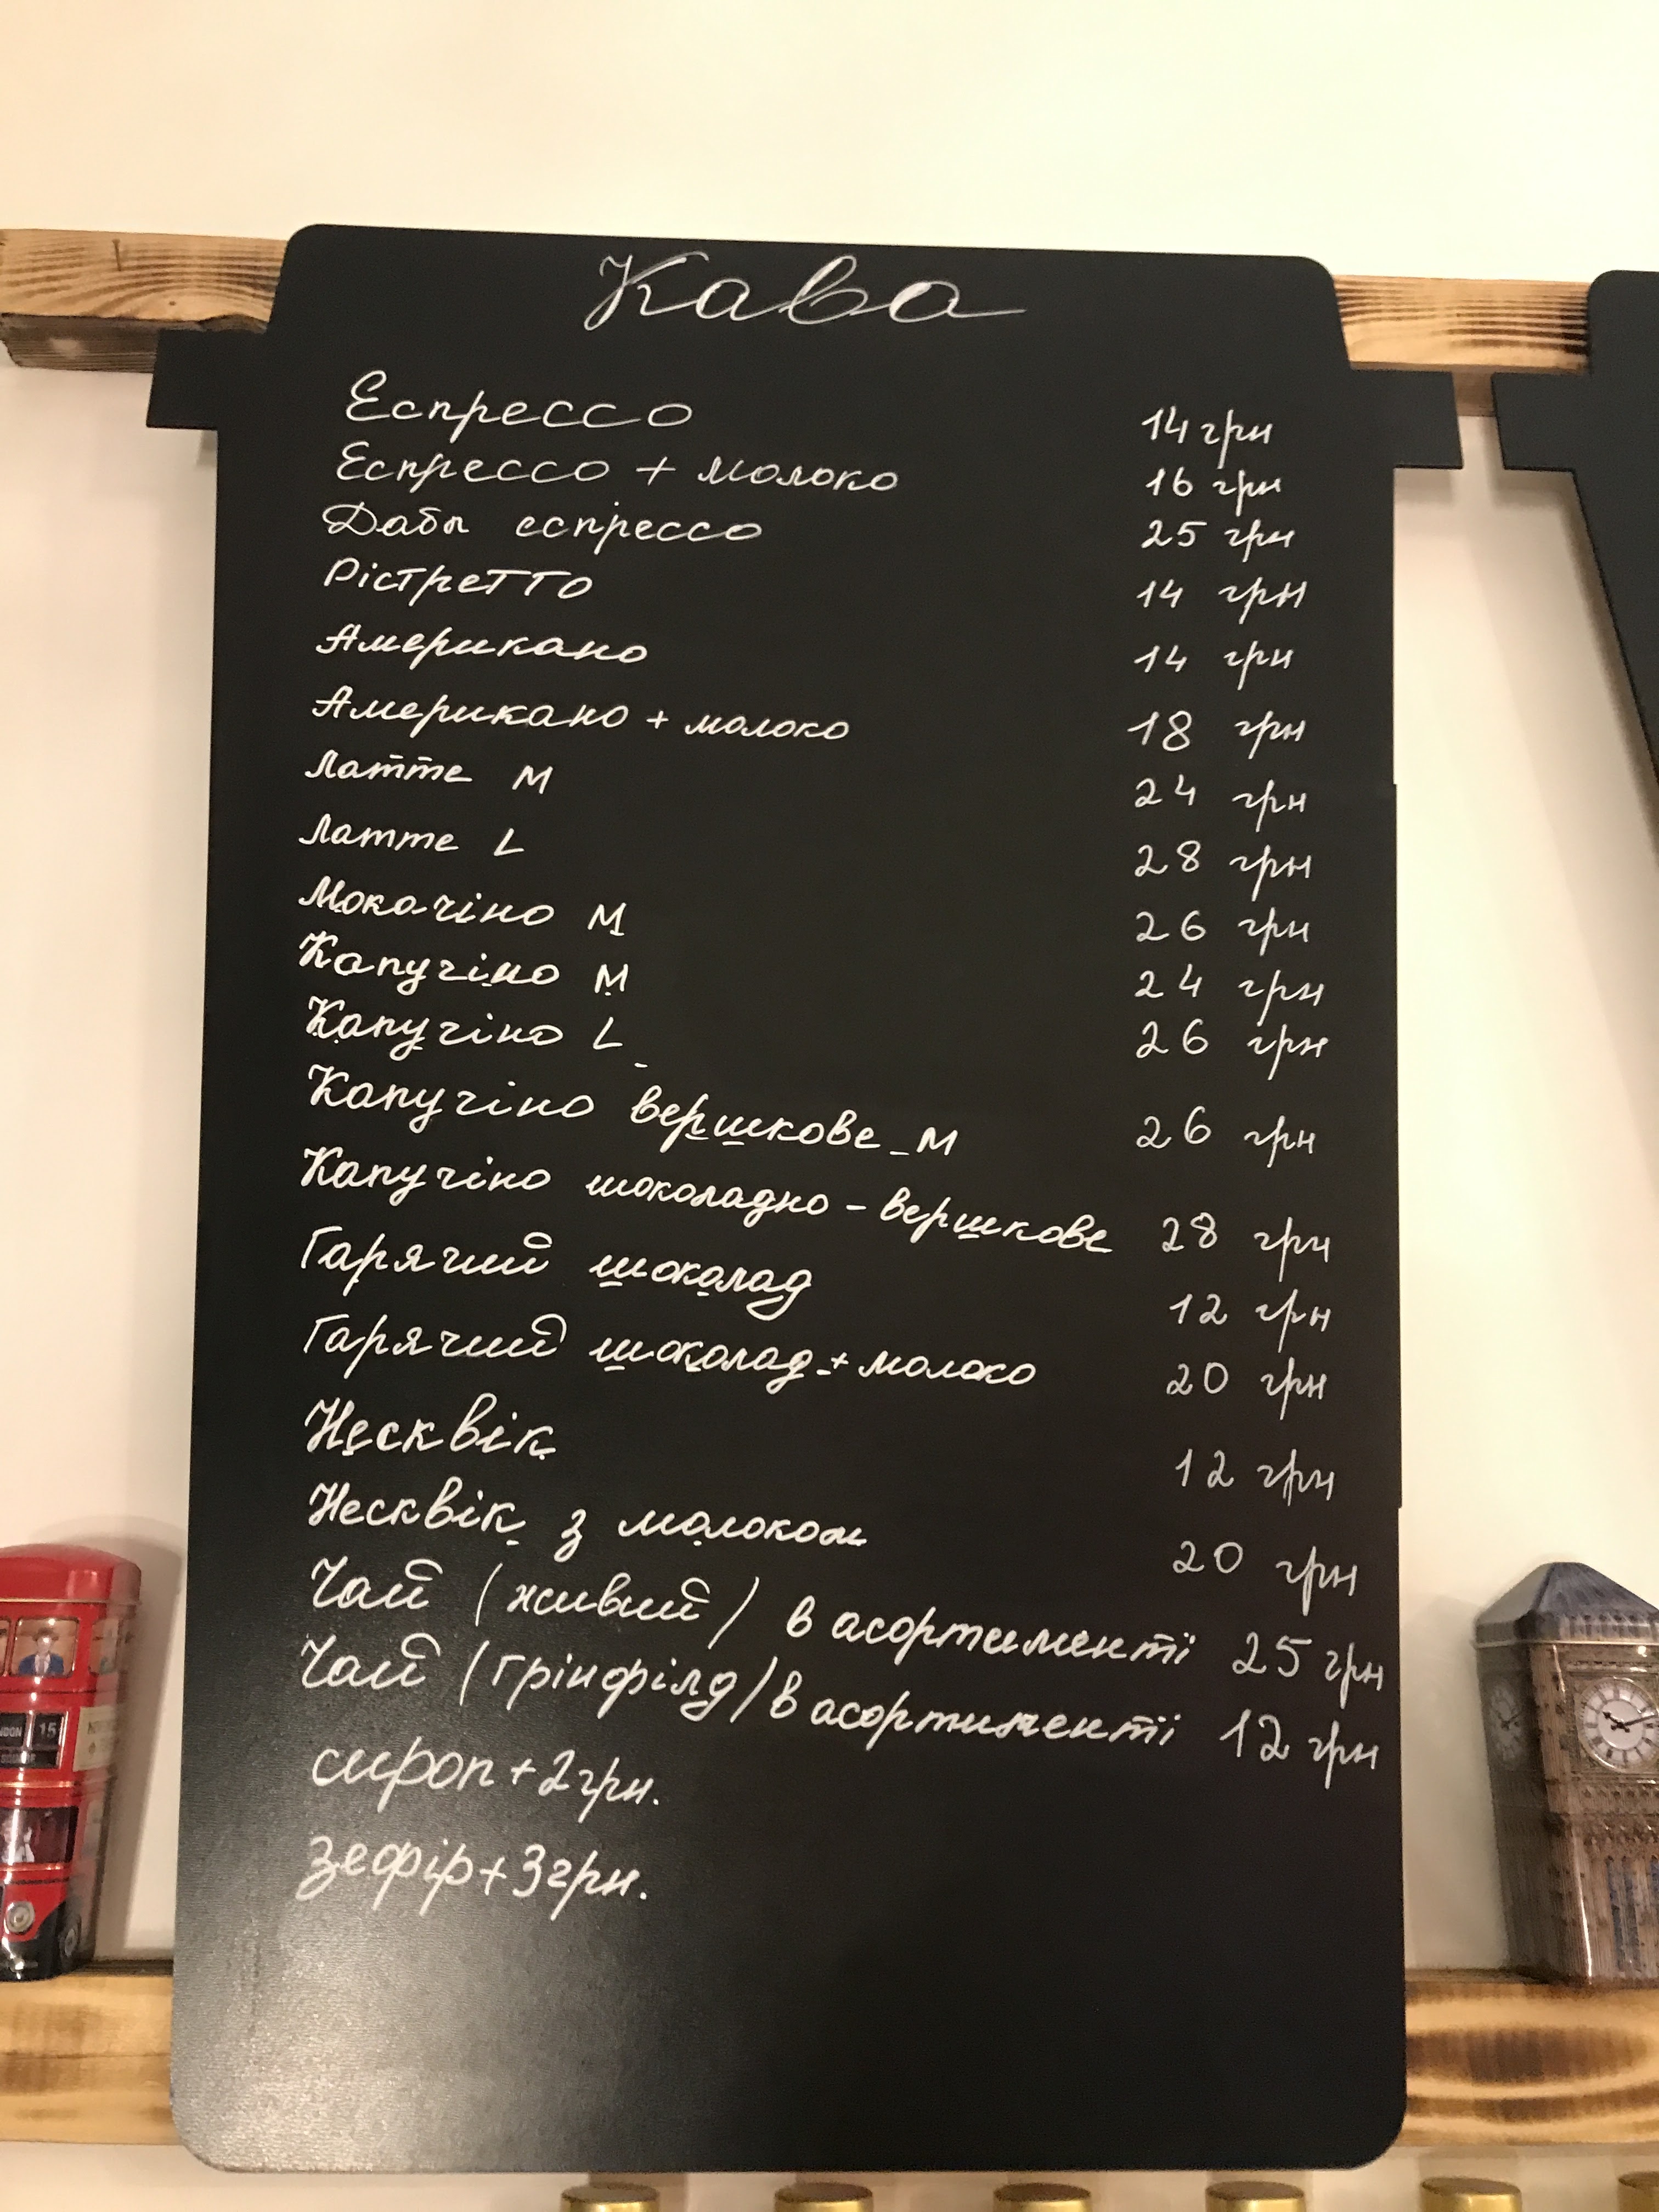 Кава
Еспрессо 14 грн
Еспрессо + молоко 16 грн
Дабл еспрессо 25 грн
Рістретто 14 грн
Американо 14 грн
Американо + молоко 18 грн
Латте М 24 грн
Латте L 28 грн
Мокачіно М 26 грн
Капучіно М 24 грн
Капучіно L 26 грн
Капучіно вершкове М 26 грн
Капучіно шоколадно - вершкове 28 грн
Гарячий шоколад 12 грн
Гарячий шоколад + молоко 20 грн
Несквік 12 грн
Несквік з молоком 20 грн
Чай (живий) в асортименті 25 грн
Чай (Грінфілд) в асортименті 12 грн
сироп + 2 грн.
зефір + 3 грн.
15